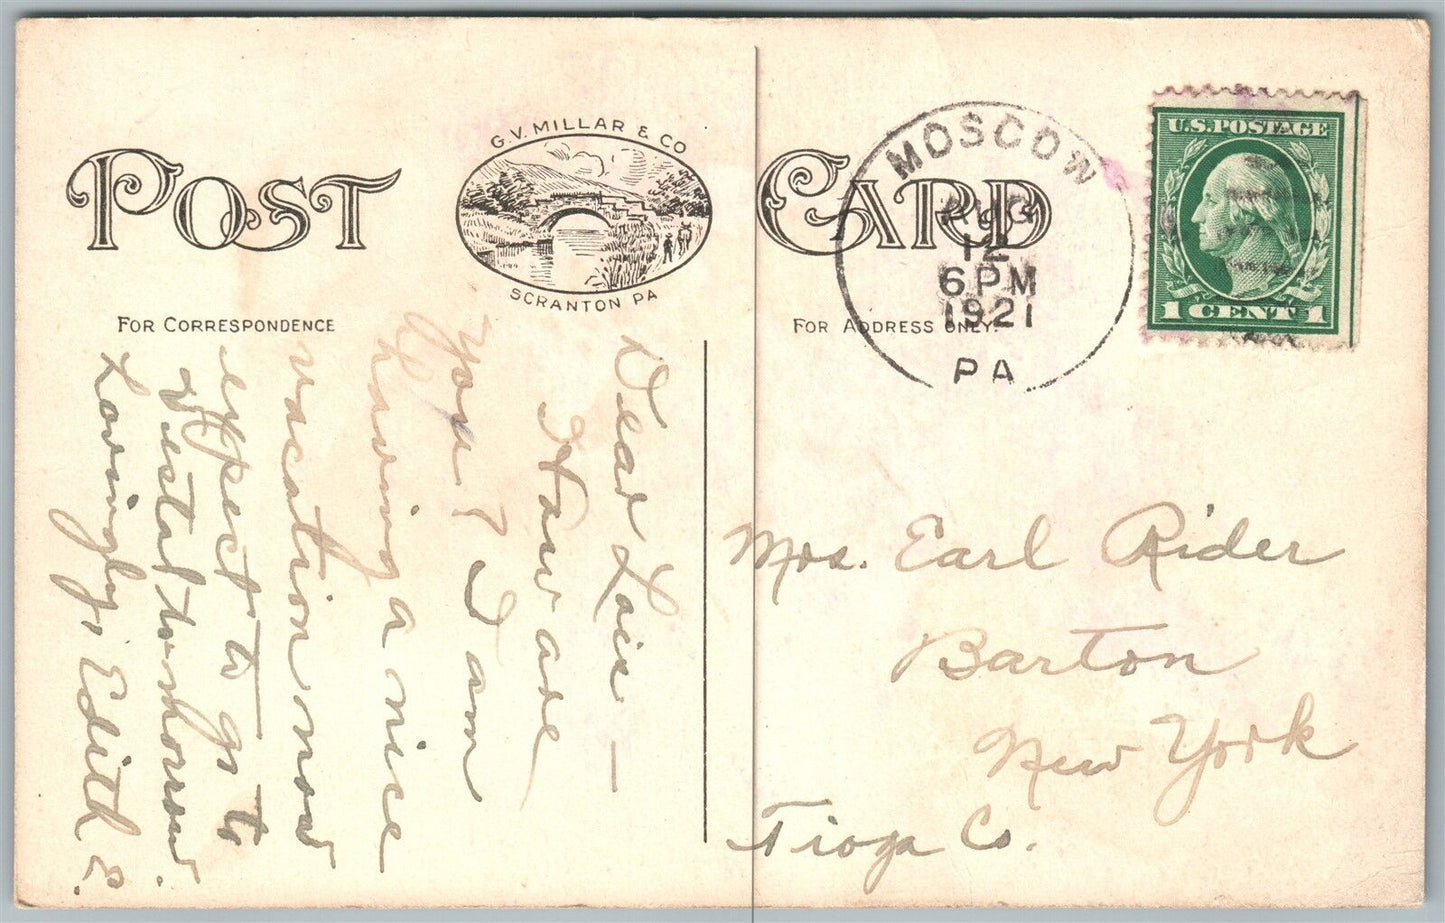 POST CARD
G.V. MILLAR & CO
SCRANTON PA
FOR CORRESPONDENCE
FOR ADDRESS ONLY.
MOSCOW
AUG
12
6 PM
1921
PA
U.S. POSTAGE
1 CENT 1
Dear Lois —
How are
you? I am
having a nice
vacation now
expect to go to
Vestal to-morrow.
Lovingly, Edith E.
Mrs. Earl Rider
Barton
New York
Tioga Co.